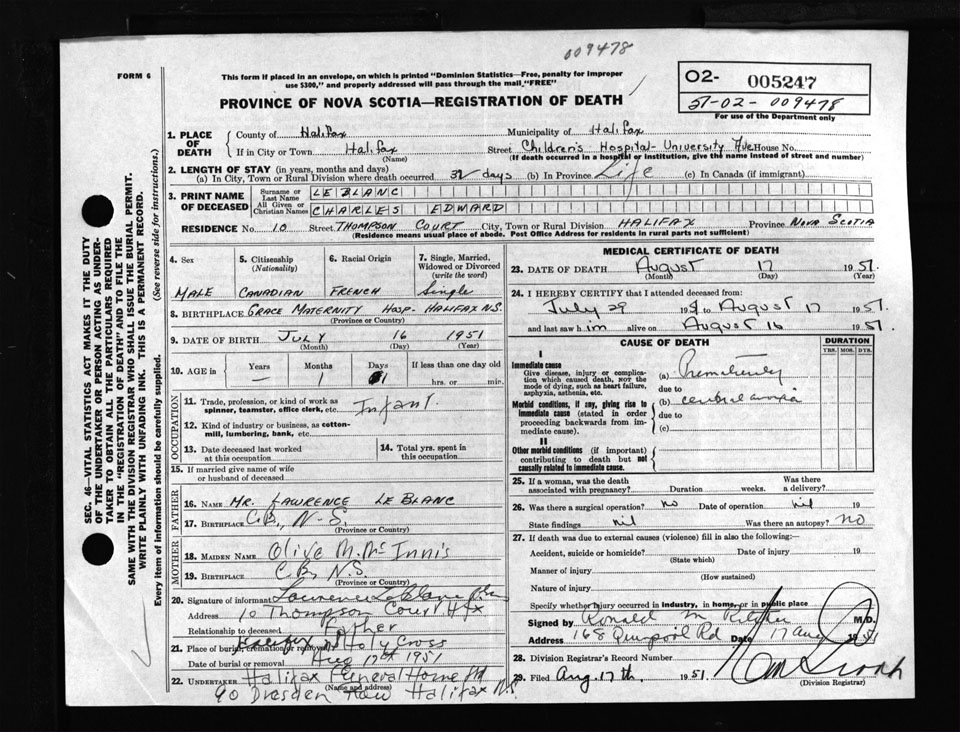 009478
FORM 6
This form if placed in an envelope, on which is printed "Dominion Statistics—Free, penalty for improper
use $300," and properly addressed will pass through the mail "FREE"
PROVINCE OF NOVA SCOTIA—REGISTRATION OF DEATH
O2- 005247
51-02-009478
For use of the Department only
SEC. 46—VITAL STATISTICS ACT MAKES IT THE DUTY
OF THE UNDERTAKER OR PERSON ACTING AS UNDER-
TAKER TO OBTAIN ALL THE PARTICULARS REQUIRED
IN THE "REGISTRATION OF DEATH" AND TO FILE THE
SAME WITH THE DIVISION REGISTRAR WHO SHALL ISSUE THE BURIAL PERMIT.
WRITE PLAINLY WITH UNFADING INK. THIS IS A PERMANENT RECORD.
Every item of information should be carefully supplied. (See reverse side for instructions.)
1. PLACE OF DEATH
County of Halifax Municipality of Halifax
If in City or Town Halifax Street Children's Hospital-University Ave House No.
(Name) (If death occurred in a hospital or institution, give the name instead of street and number)
2. LENGTH OF STAY (in years, months and days)
(a) In City, Town or Rural Division where death occurred 32 days (b) In Province Life (c) In Canada (if immigrant)
3. PRINT NAME OF DECEASED
Surname or Last Name LE BLANC
All Given or Christian Names CHARLES EDWARD
RESIDENCE No. 10 Street THOMPSON COURT City, Town or Rural Division HALIFAX Province NOVA SCOTIA
(Residence means usual place of abode. Post Office Address for residents in rural parts not sufficient)
4. Sex 5. Citizenship (Nationality) 6. Racial Origin 7. Single, Married, Widowed or Divorced (write the word)
MALE CANADIAN FRENCH Single
8. BIRTHPLACE GRACE MATERNITY HOSP- HALIFAX N.S.
(Province or Country)
9. DATE OF BIRTH JULY 16 1951
(Month) (Day) (Year)
10. AGE in Years Months Days If less than one day old
— 1 1 hrs. or min.
OCCUPATION
11. Trade, profession, or kind of work as spinner, teamster, office clerk, etc. Infant.
12. Kind of industry or business, as cotton-mill, lumbering, bank, etc.
13. Date deceased last worked at this occupation
14. Total yrs. spent in this occupation
15. If married give name of wife or husband of deceased
FATHER
16. NAME MR. LAWRENCE LE BLANC
17. BIRTHPLACE C.B., N.S.
(Province or Country)
MOTHER
18. MAIDEN NAME Olive M. McInnis
19. BIRTHPLACE C.B., N.S.
(Province or Country)
20. Signature of informant Lawrence LeBlanc
Address 10 Thompson Court Hfx
Relationship to deceased Father
21. Place of burial, cremation or removal Halifax Holy Cross
Date of burial or removal Aug 1951
22. UNDERTAKER Halifax Funeral Home Ltd
(Name and address)
90 Dresden Row Halifax N.S.
MEDICAL CERTIFICATE OF DEATH
23. DATE OF DEATH August 17 1951.
(Month) (Day)
24. I HEREBY CERTIFY that I attended deceased from:
July 29 1951 to August 17 1951.
and last saw him alive on August 16 1951.
CAUSE OF DEATH DURATION
YRS. MOS. DYS.
I
Immediate cause
Give disease, injury or complication which caused death, NOT the mode of dying, such as heart failure, asphyxia, asthenia, etc.
(a) Prematurity
due to
Morbid conditions, if any, giving rise to immediate cause (stated in order proceeding backwards from immediate cause).
(b) cerebral anoxia
due to
(c)
II
Other morbid conditions (if important) contributing to death but not causally related to immediate cause.
25. If a woman, was the death associated with pregnancy? Duration weeks. Was there a delivery?
26. Was there a surgical operation? no Date of operation nil 19
State findings nil Was there an autopsy? no
27. If death was due to external causes (violence) fill in also the following:—
Accident, suicide or homicide? Date of injury 19
(State which)
Manner of injury
(How sustained)
Nature of injury
Specify whether injury occurred in industry, in home, or in public place
Signed by Ronald M M.D.
Address 168 Quinpool Rd Date 17 Aug 1951
28. Division Registrar's Record Number
29. Filed Aug. 17th, 1951.
(Division Registrar)